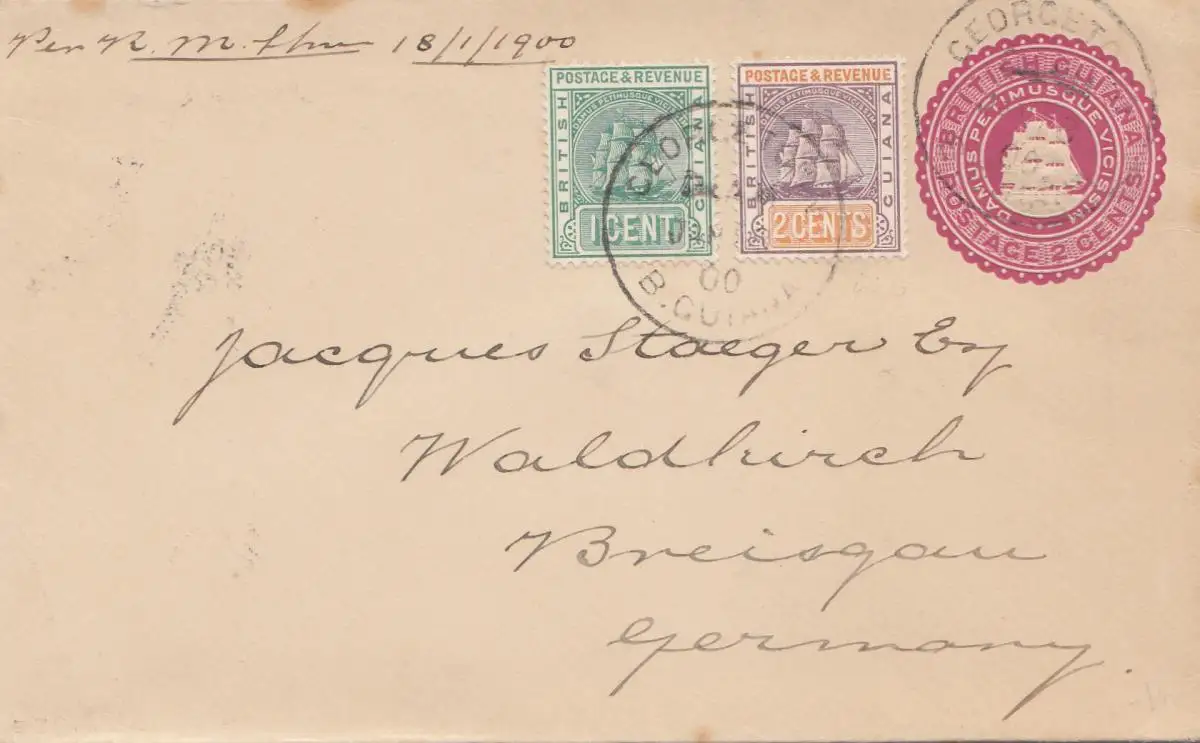 Per R. M. Str 18/1/1900
POSTAGE & REVENUE
BRITISH
GUIANA
DAMUS PETIMUSQUE VICISSIM
1 CENT
POSTAGE & REVENUE
BRITISH
GUIANA
DAMUS PETIMUSQUE VICISSIM
2 CENTS
GEORGETO
BRITISH GUIANA
DAMUS PETIMUSQUE VICISSIM
POSTAGE 2 CENTS
00
B. GUIANA
Jacques Staeger Esq
Waldkirch
Breisgau
Germany.